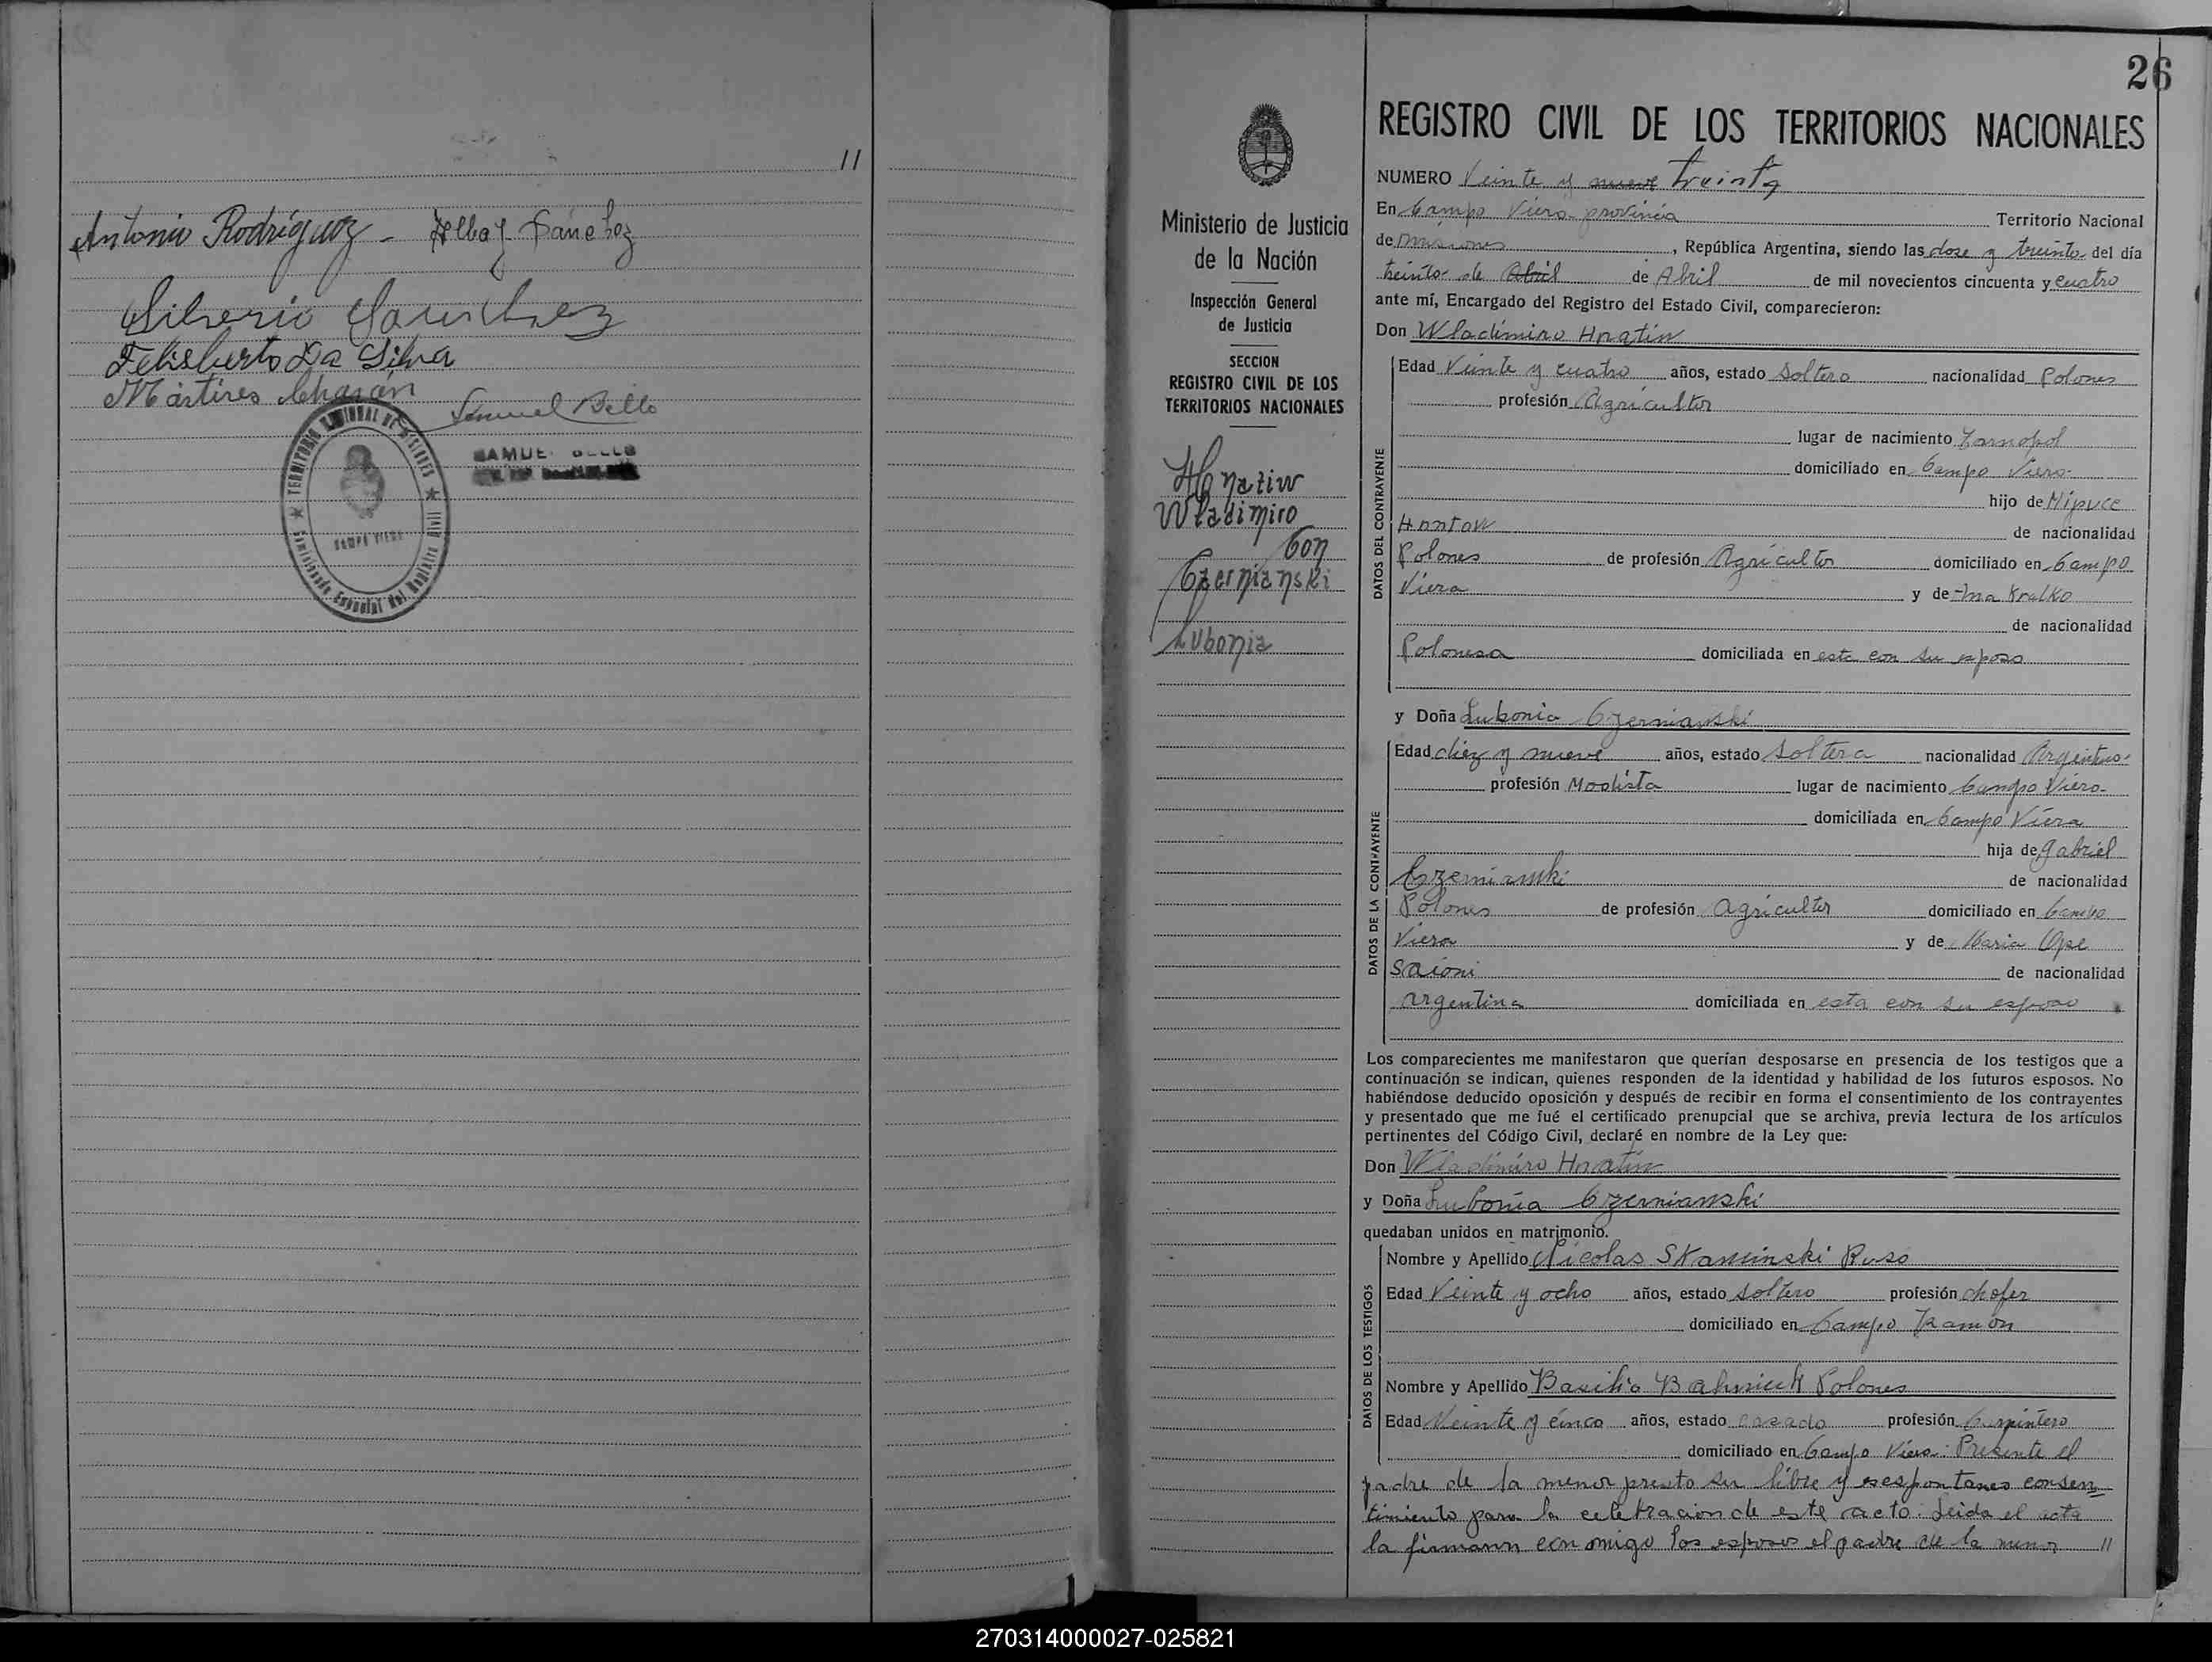 11
Antonio Rodríguez - Elba J. Sánchez
Silverio Sanchez
Felisberto Da Silva
Mártires Chazan
Samuel Bello
SAMUEL BELLO
TERRITORIO NACIONAL DE MISIONES
CAMPO VIERA
Comisionado Especial del Registro Civil
26
Ministerio de Justicia
de la Nación
Inspección General
de Justicia
SECCION
REGISTRO CIVIL DE LOS
TERRITORIOS NACIONALES
Hnatiw
Wladimiro
Con
Czernianski
Lubonia
REGISTRO CIVIL DE LOS TERRITORIOS NACIONALES
NUMERO Veinte y nueve treinta
En Campo Viera - provincia Territorio Nacional
de Misiones, República Argentina, siendo las dose y treinta del día
treinta de Abril de Abril de mil novecientos cincuenta y cuatro
ante mí, Encargado del Registro del Estado Civil, comparecieron:
Don Wladimiro Hnatiw
DATOS DEL CONTRAYENTE
Edad Veinte y cuatro años, estado Soltero nacionalidad Polones
profesión Agricultor
lugar de nacimiento Tarnopol
domiciliado en Campo Viera
hijo de
de nacionalidad
Polones de profesión Agricultor domiciliado en Campo
Viera y de Kralko
de nacionalidad
Polonesa domiciliada en esta con su esposo
y Doña Lubonia Czernianski
DATOS DE LA CONTRAYENTE
Edad diez y nueve años, estado Soltera nacionalidad Argentina
profesión Modista lugar de nacimiento Campo Viera
domiciliada en Campo Viera
hija de Gabriel
Czernianski de nacionalidad
Polones de profesión Agricultor domiciliado en Campo
Viera y de Maria Ope
saioni de nacionalidad
argentina domiciliada en esta con su esposo
Los comparecientes me manifestaron que querían desposarse en presencia de los testigos que a
continuación se indican, quienes responden de la identidad y habilidad de los futuros esposos. No
habiéndose deducido oposición y después de recibir en forma el consentimiento de los contrayentes
y presentado que me fué el certificado prenupcial que se archiva, previa lectura de los artículos
pertinentes del Código Civil, declaré en nombre de la Ley que:
Don Wladimiro Hnatiw
y Doña Lubonia Czernianski
quedaban unidos en matrimonio.
DATOS DE LOS TESTIGOS
Nombre y Apellido Nicolas Skaminski Ruso
Edad Veinte y ocho años, estado soltero profesión chofer
domiciliado en Campo Ramón
Nombre y Apellido Basilio Polones
Edad Veinte y cinco años, estado casado profesión Carpintero
domiciliado en Campo Viera. Presente el
padre de la menor presto su libre y esespontaneo consen=
timiento para la celebracion de este acto. Leida el acta
la firmann con migo los esposos el padre de la menor 11
270314000027-025821